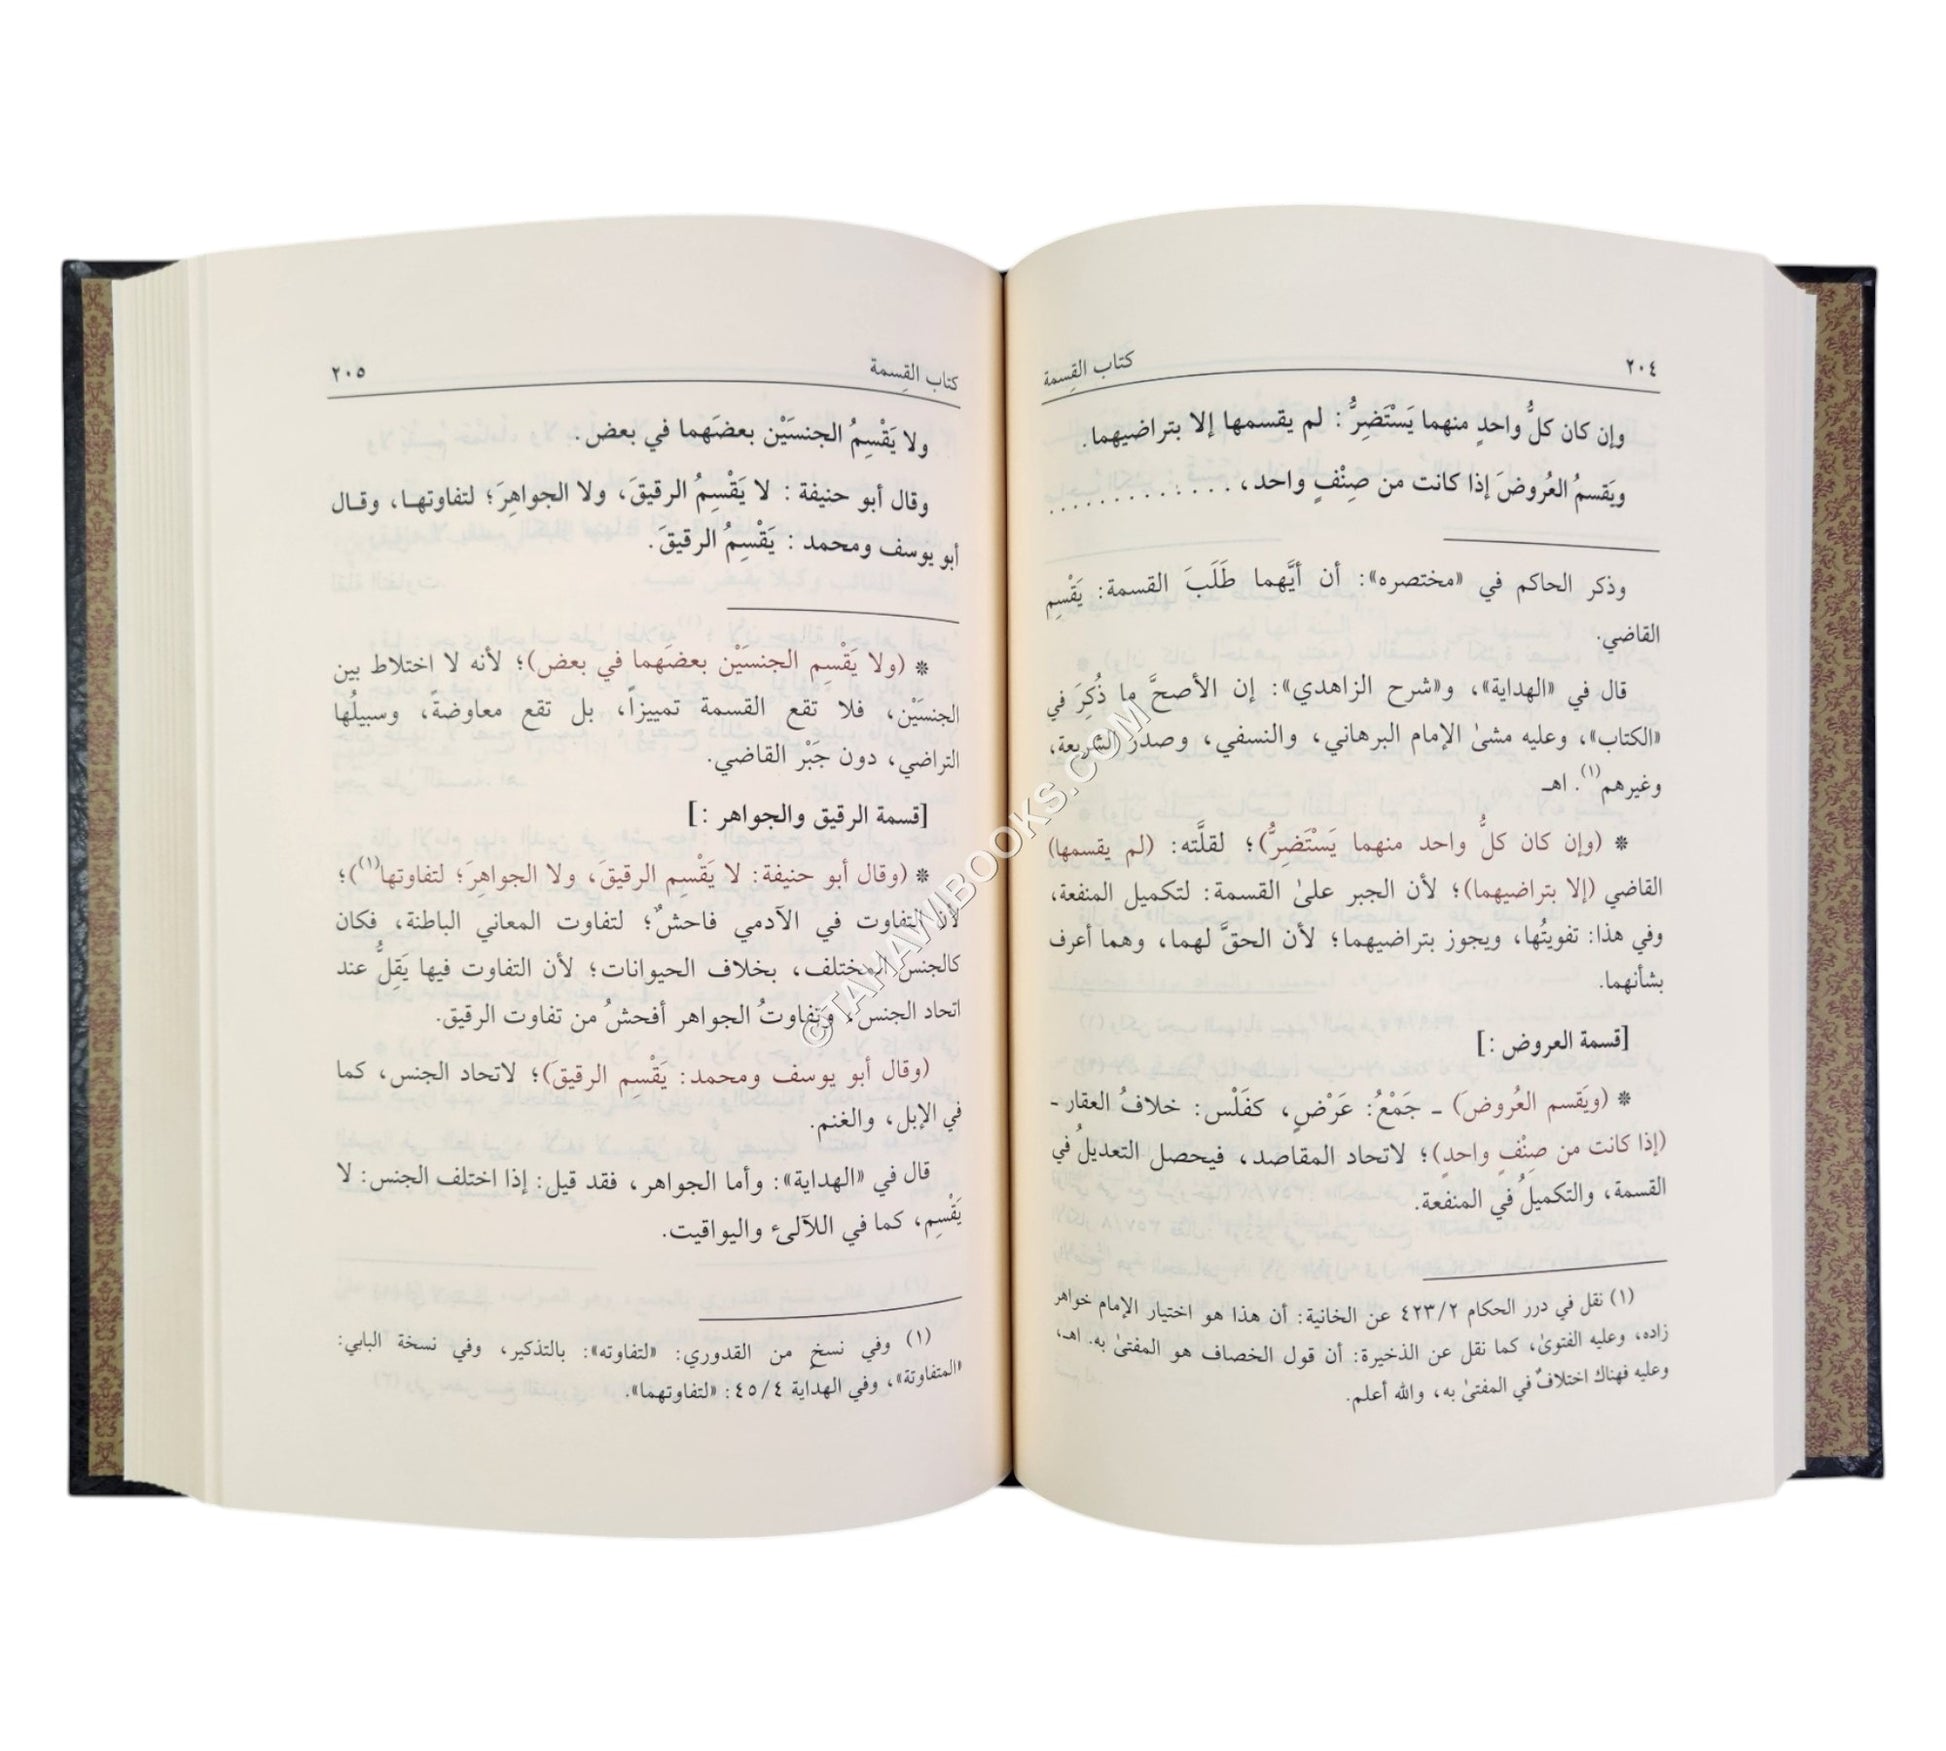 ٢٠٤ كتاب القِسمة
وإن كان كلُّ واحدٍ منهما يَسْتَضِرُّ : لم يقسمها إلا بتراضيهما.
ويَقسمُ العُروضَ إذا كانت من صِنْفٍ واحد، . . . . . . . . . . . .
وذكر الحاكم في «مختصره»: أن أيَّهما طَلَبَ القسمة: يَقْسِم
القاضي.
قال في «الهداية»، و«شرح الزاهدي»: إن الأصحَّ ما ذُكِرَ في
«الكتاب»، وعليه مشىٰ الإمام البرهاني، والنسفي، وصدر الشريعة،
وغيرهم(١). اهـ
* (وإن كان كلُّ واحد منهما يَسْتَضِرُّ)؛ لقلَّته: (لم يقسمها)
القاضي (إلا بتراضيهما)؛ لأن الجبر علىٰ القسمة: لتكميل المنفعة،
وفي هذا: تفويتُها، ويجوز بتراضيهما؛ لأن الحقَّ لهما، وهما أعرف
بشأنهما.
[قسمة العروض :]
* (ويَقسم العُروضَ) ـ جَمْعُ: عَرْضٍ، كفَلْس: خلافُ العقار ـ
(إذا كانت من صِنْفٍ واحدٍ)؛ لاتحاد المقاصد، فيحصل التعديلُ في
القسمة، والتكميلُ في المنفعة.
(١) نقل في درر الحكام ٤٢٣/٢ عن الخانية: أن هذا هو اختيار الإمام خواهر
زاده، وعليه الفتوىٰ، كما نقل عن الذخيرة: أن قول الخصاف هو المفتىٰ به. اهـ،
وعليه فهناك اختلافٌ في المفتىٰ به، والله أعلم.
كتاب القِسمة ٢٠٥
ولا يَقْسِمُ الجنسَيْن بعضَهما في بعض.
وقال أبو حنيفة : لا يَقْسِمُ الرقيقَ، ولا الجواهِرَ؛ لتفاوتها، وقال
أبو يوسف ومحمد : يَقْسِمُ الرقيقَ.
* (ولا يَقْسِم الجنسَيْن بعضَهما في بعض)؛ لأنه لا اختلاط بين
الجنسَيْن، فلا تقع القسمة تمييزاً، بل تقع معاوضةً، وسبيلُها
التراضي، دون جَبْر القاضي.
[قسمة الرقيق والجواهر :]
* (وقال أبو حنيفة: لا يَقْسِم الرقيقَ، ولا الجواهِرَ؛ لتفاوتها(١))؛
لأن التفاوت في الآدمي فاحشٌ؛ لتفاوت المعاني الباطنة، فكان
كالجنس المختلف، بخلاف الحيوانات؛ لأن التفاوت فيها يَقِلُّ عند
اتحاد الجنس، وتفاوتُ الجواهر أفحشُ من تفاوت الرقيق.
(وقال أبو يوسف ومحمد: يَقْسِم الرقيقَ)؛ لاتحاد الجنس، كما
في الإبل، والغنم.
قال في «الهداية»: وأما الجواهر، فقد قيل: إذا اختلف الجنس: لا
يَقْسِم، كما في اللآلىء واليواقيت.
(١) وفي نسخ من القدوري: «لتفاوته»: بالتذكير، وفي نسخة البابي:
«المتفاوتة»، وفي الهداية ٤٥/٤: «لتفاوتهما».
©TAHAWIBOOKS.COM